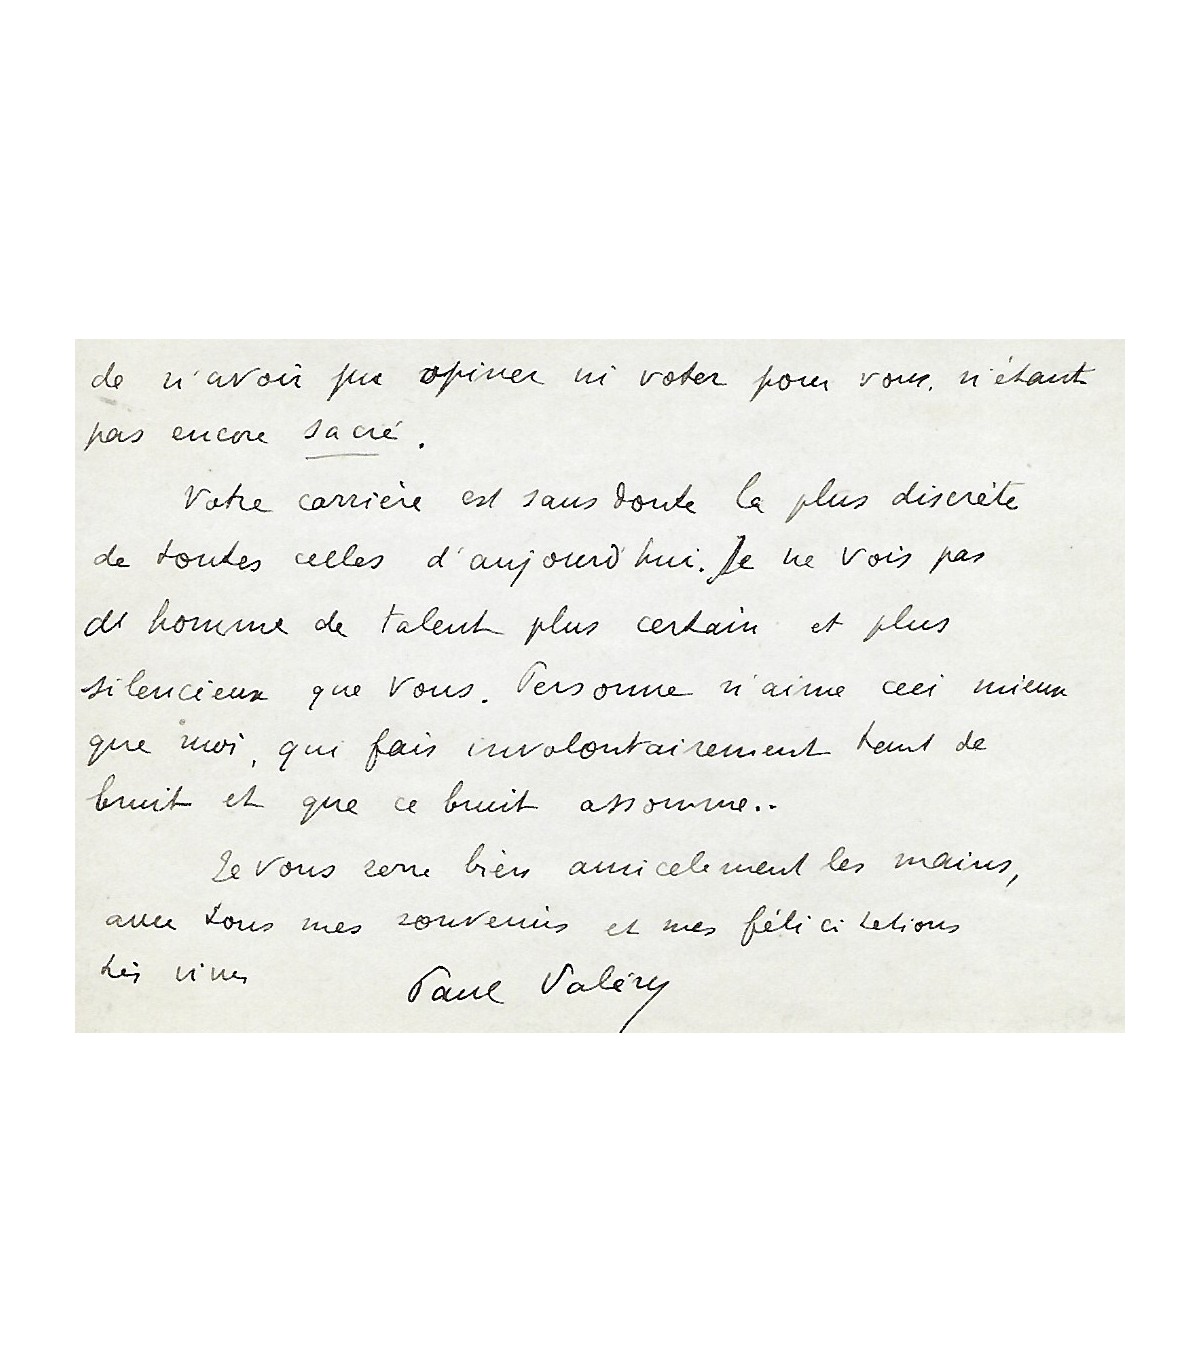 de n'avoir pu opiner ni voter pour vous, n'étant
pas encore sacré.
Votre carrière est sans doute la plus discrète
de toutes celles d'aujourd'hui. Je ne vois pas
d'homme de talent plus certain et plus
silencieux que vous. Personne n'aime ceci mieux
que moi, qui fais involontairement tant de
bruit et que ce bruit assomme..
Je vous serre bien amicalement les mains,
avec tous mes souvenirs et mes félicitations
très vives
Paul Valéry